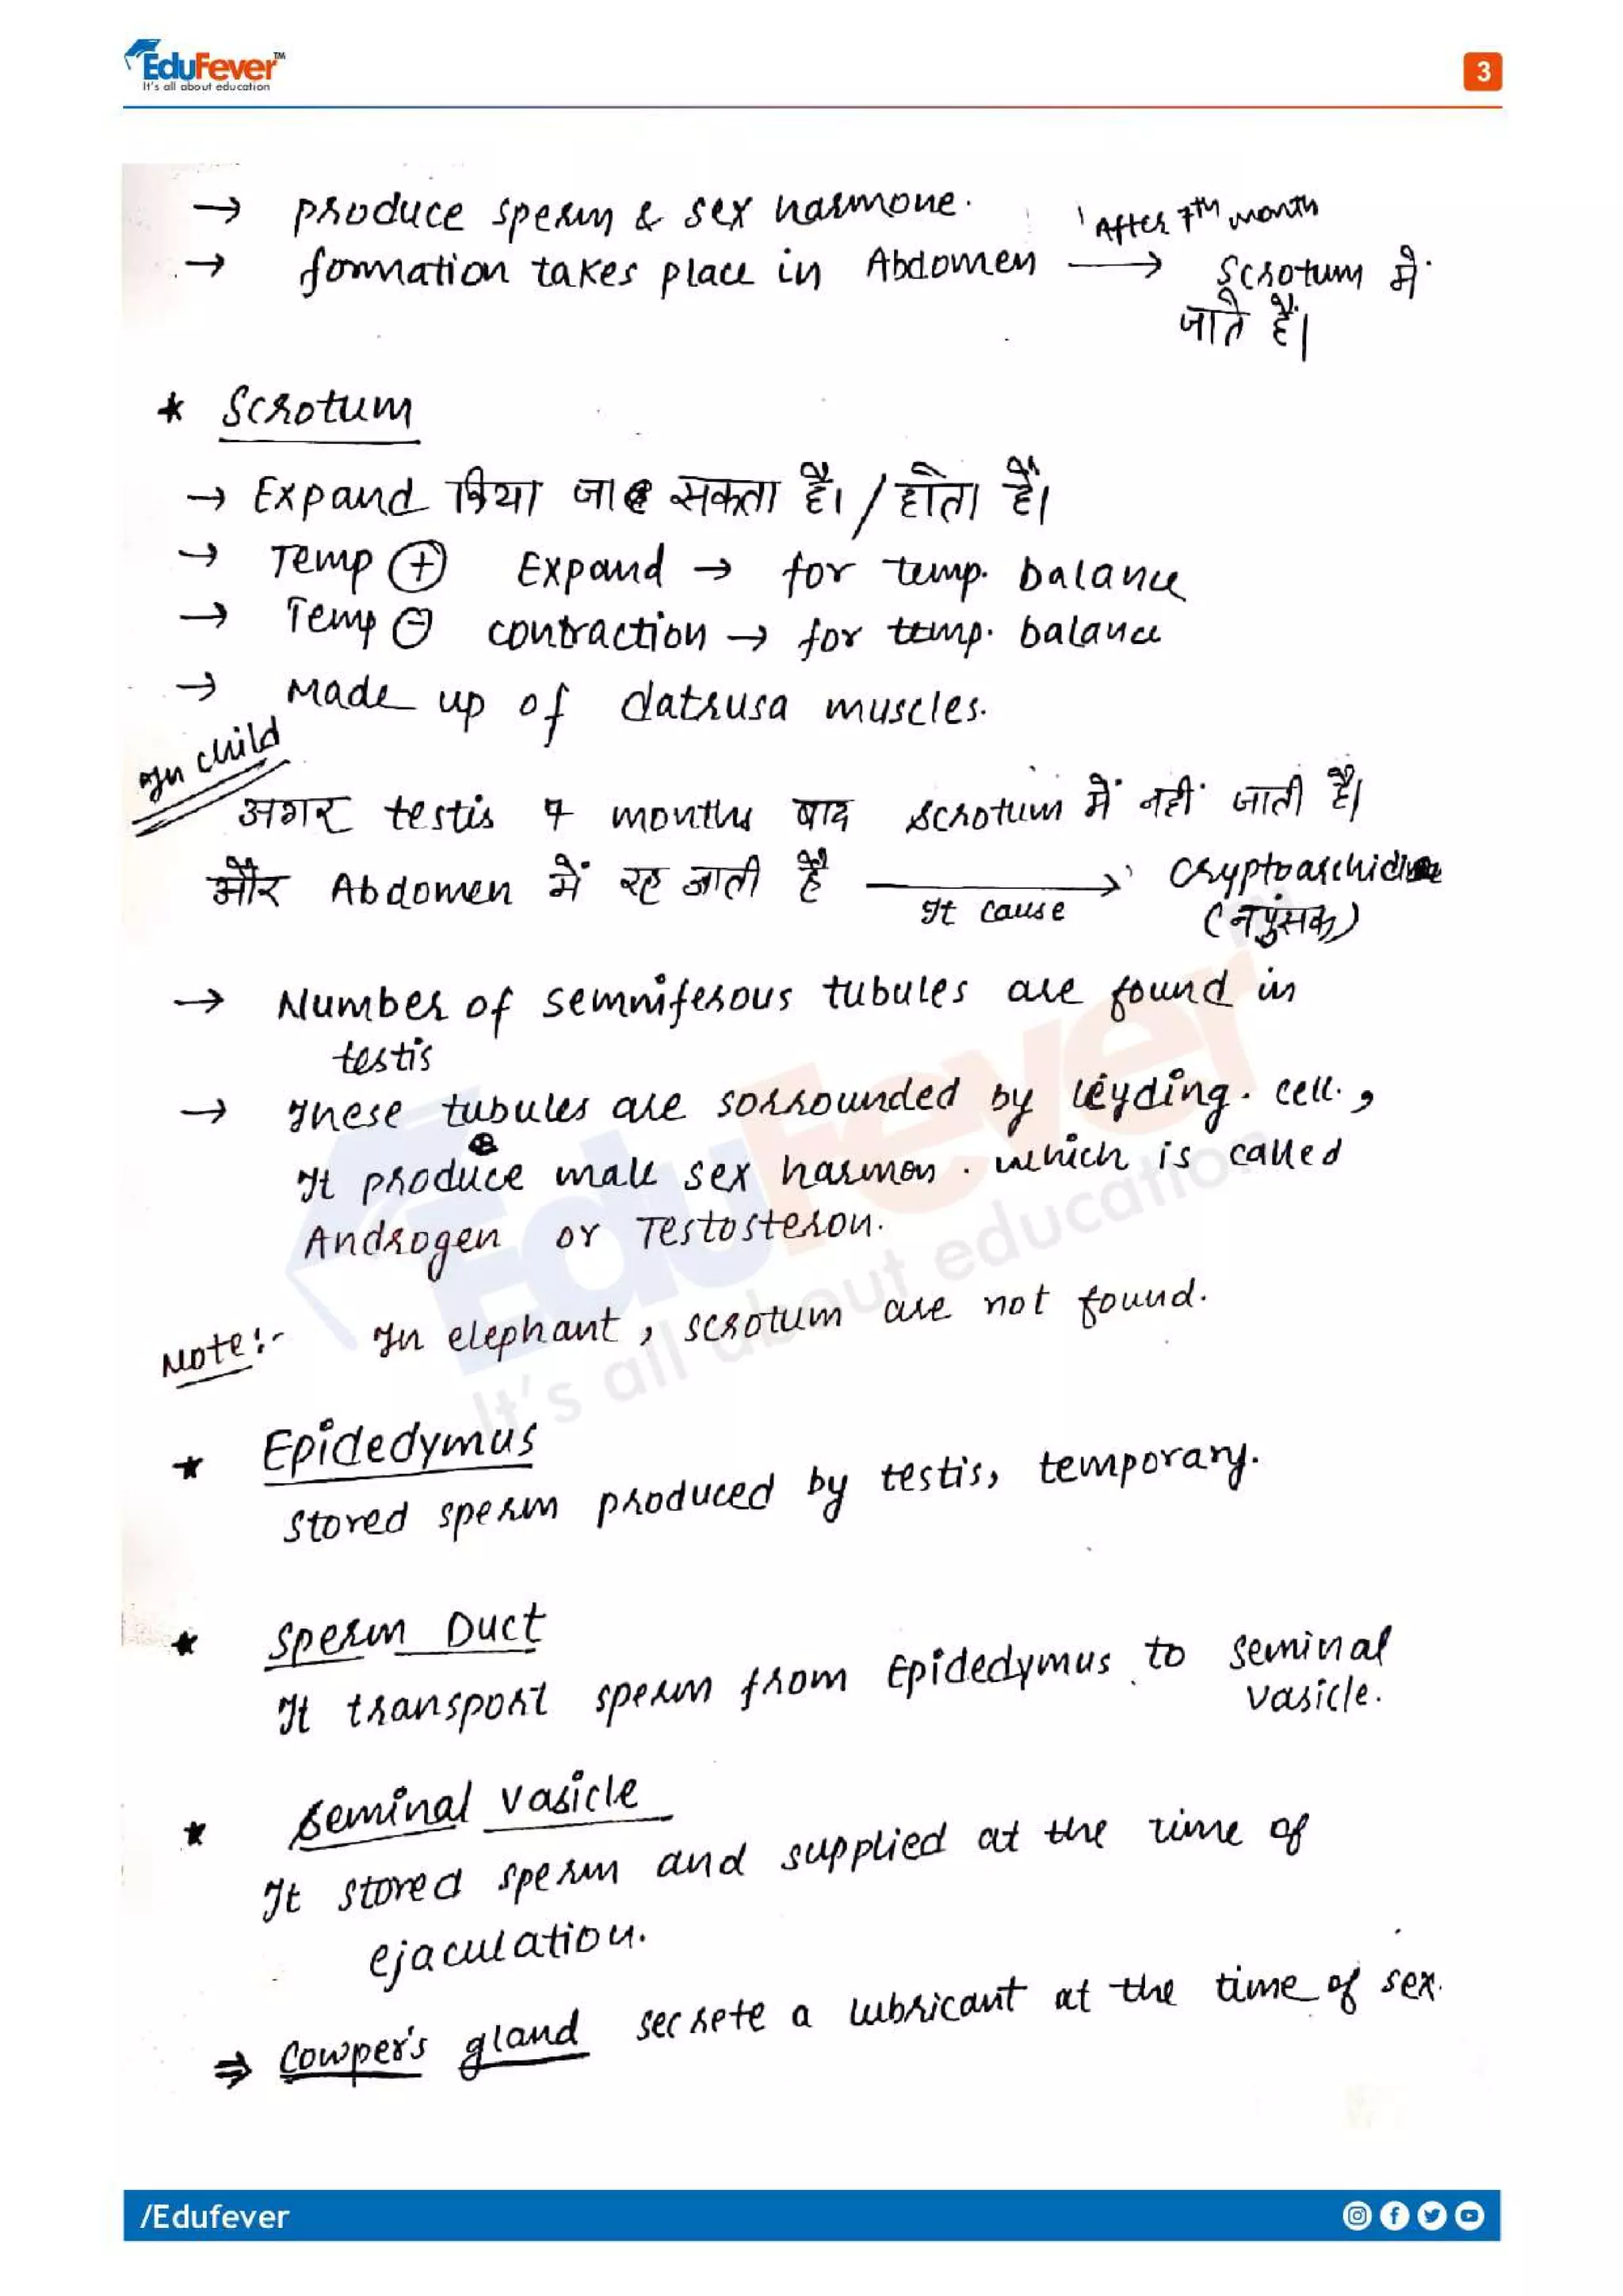 EduFever™
It's all about education
3
→ produce sperm & sex harmone.
→ formation takes place in Abdomen After 7th month → Scrotum में
जाते हैं।
* Scrotum
→ Expand किया जा सकता है। / होता है।
→ Temp ⊕ Expand → for temp. balance
→ Temp ⊖ contraction → for temp. balance
→ Made up of datrusa muscles.
In child
अगर testis 7 months बाद scrotum में नहीं जाती है।
और Abdomen में रह जाती है It cause →
(नपुंसक)
→ Number of semniferous tubules are found in
testis
→ These tubules are sorrounded by leyding. cell.,
It produce male sex harmon. which is called
Androgen or Testosteron.
Note:- In elephant, scrotum are not found.
* Epidedymus
Stored sperm produced by testis, temporary.
* Sperm Duct
It transport sperm from Epidedymus to seminal
vasicle.
* Seminal vasicle
It stored sperm and supplied at the time of
ejaculation.
⇒ Cowper's gland secrete a lubricant at the time of sex.
EduFever
It's all about education
/Edufever